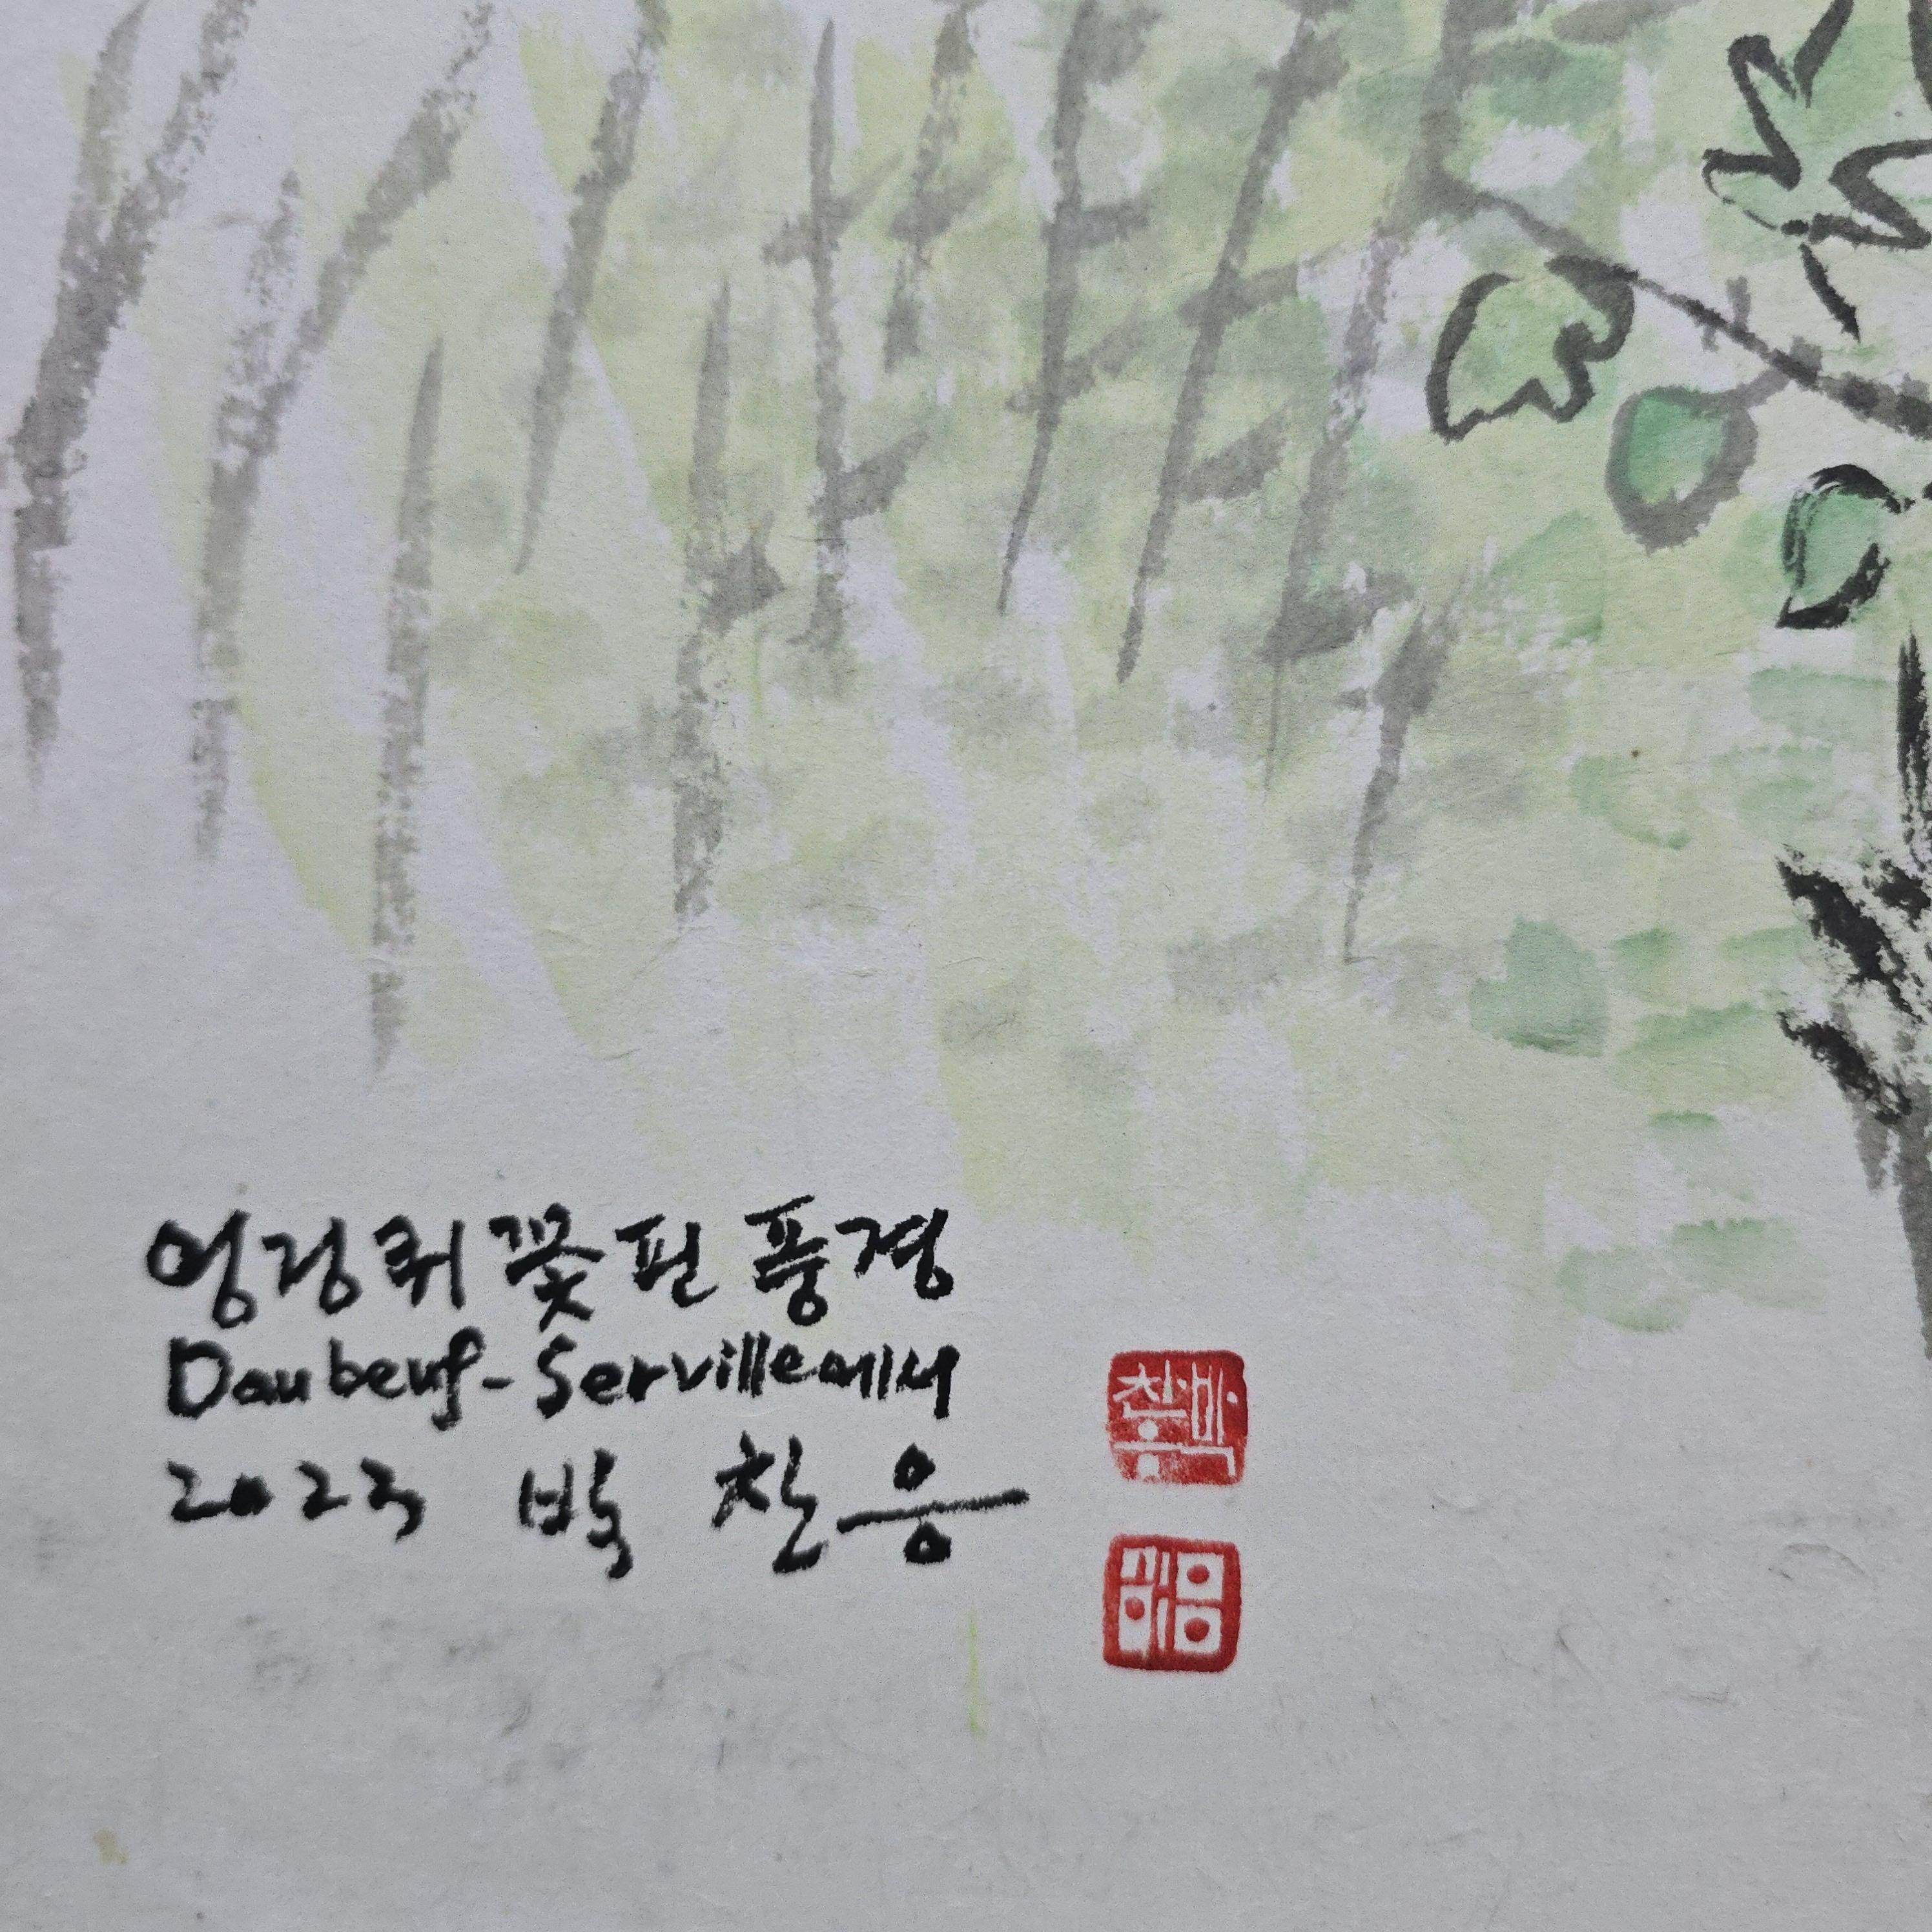 엉겅퀴꽃핀풍경
Daubeuf-Serville에서
2023 박찬응
박찬응